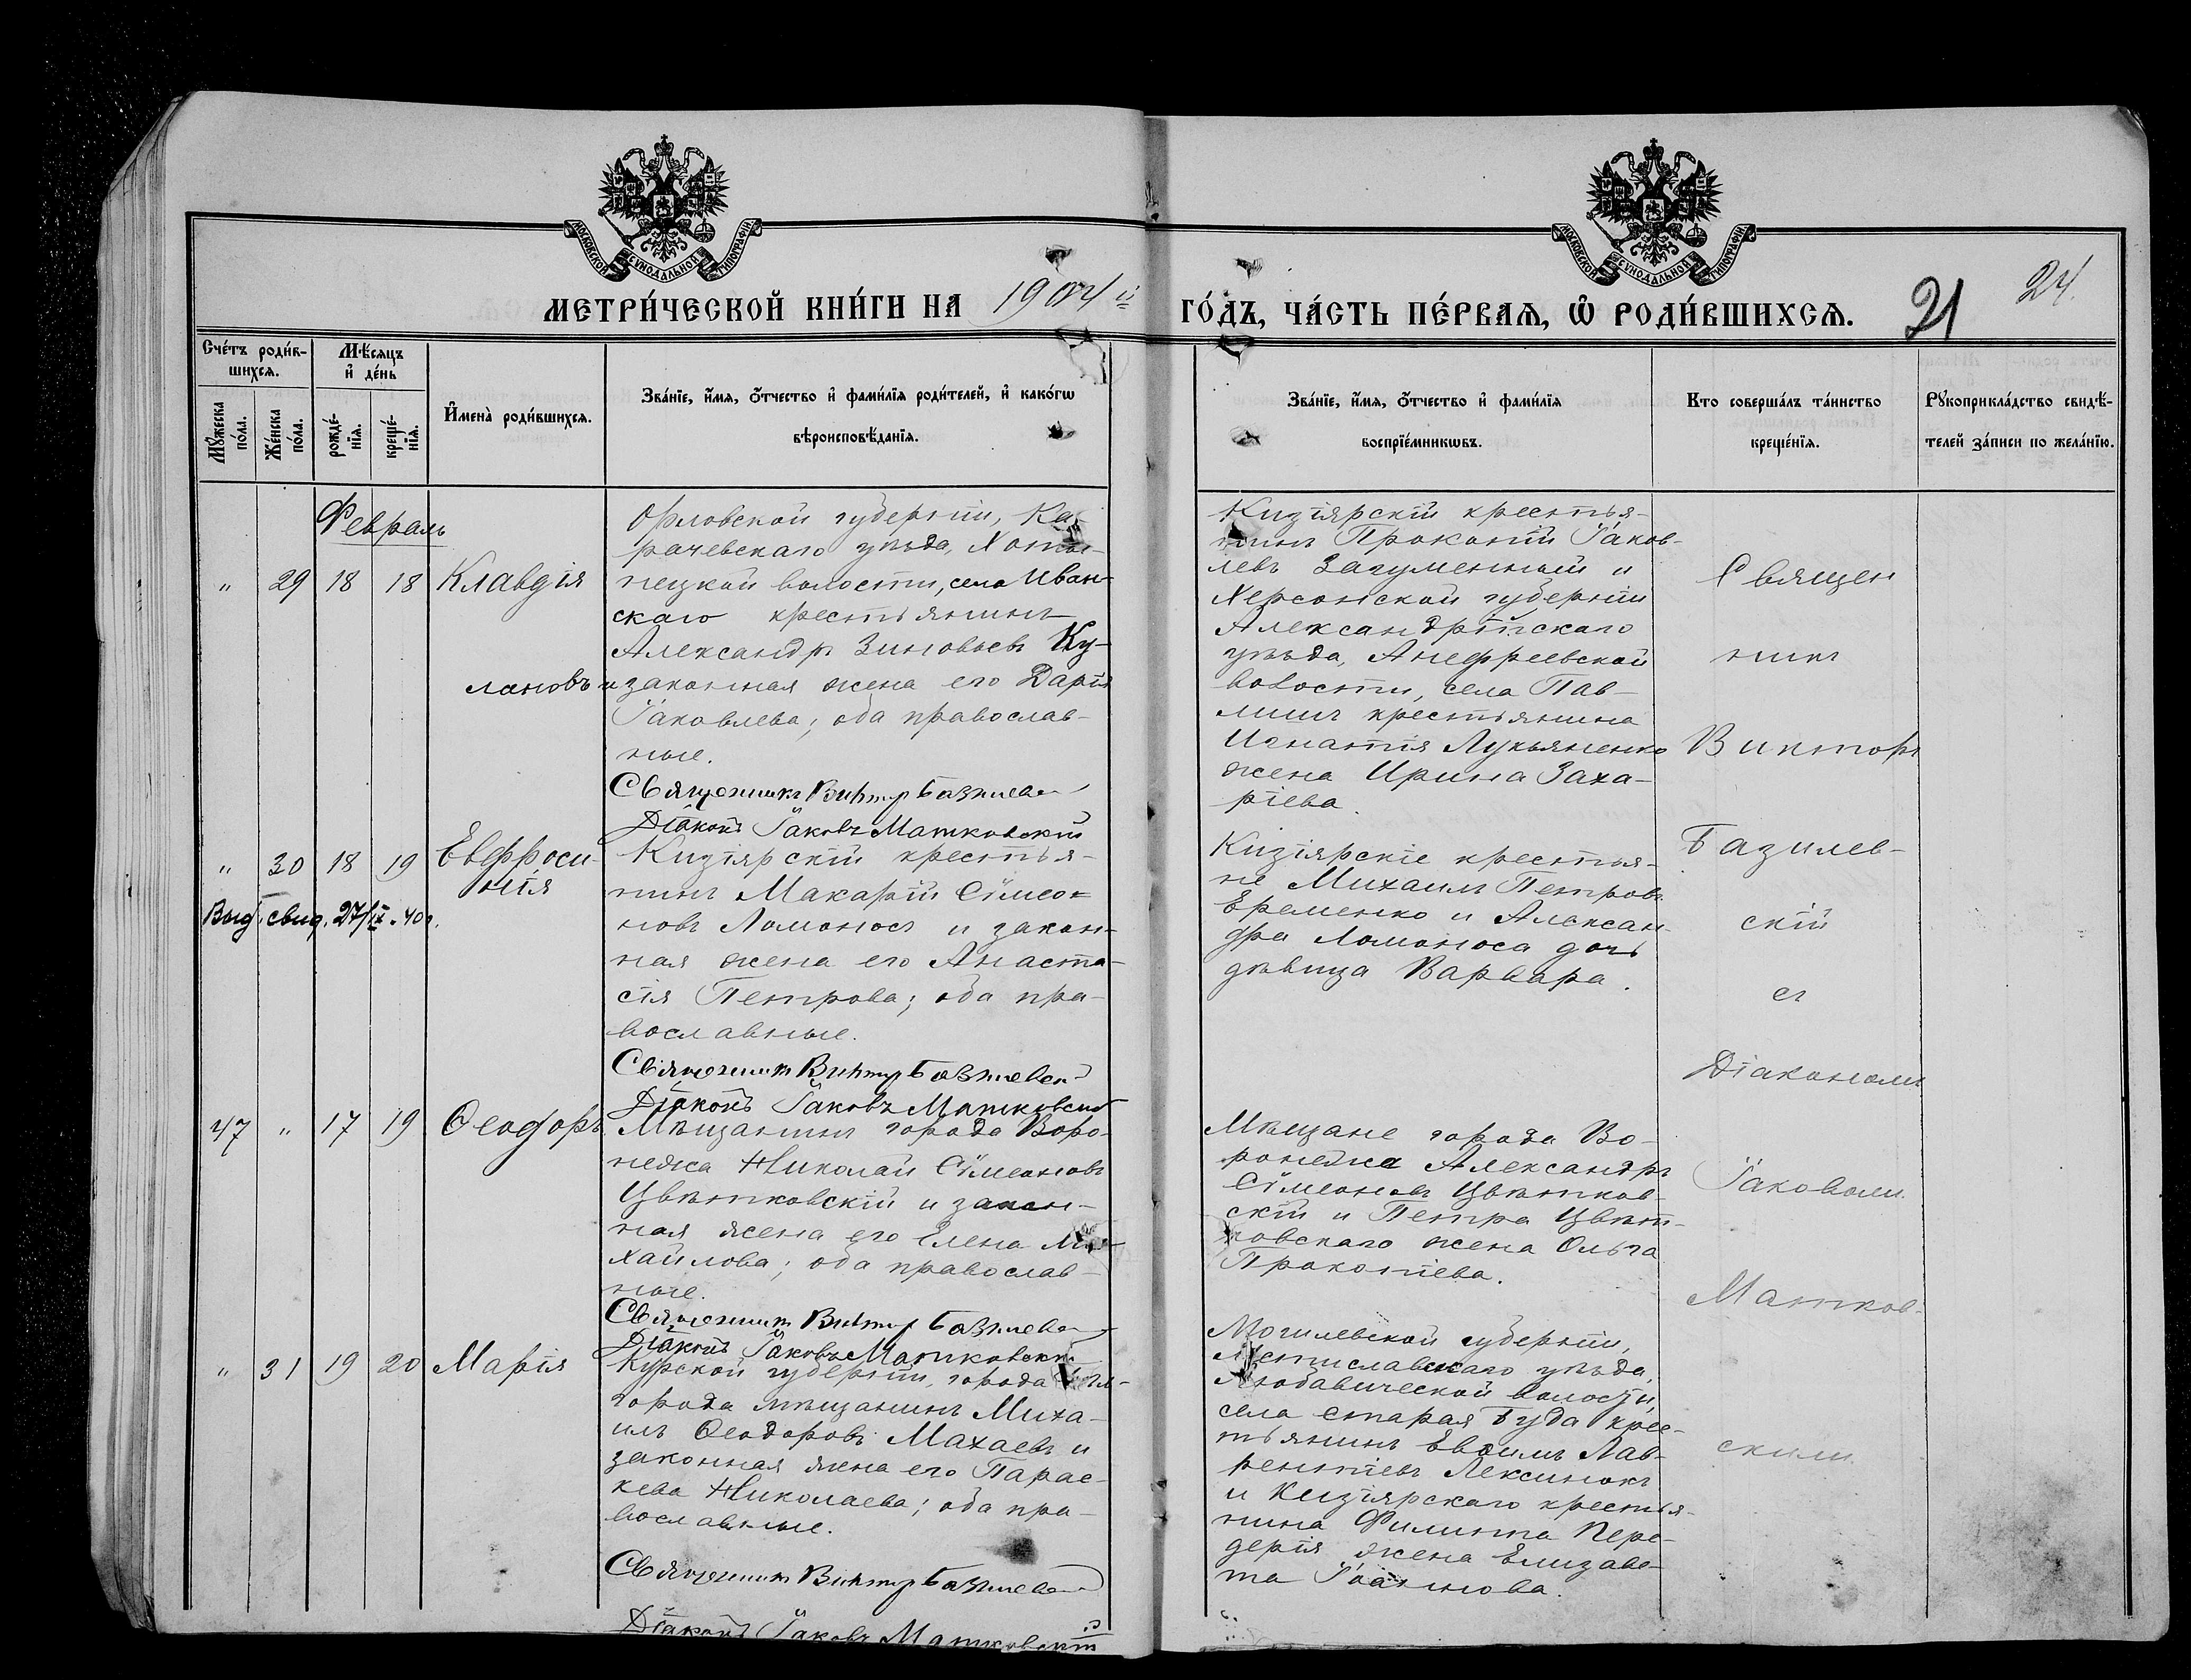 МОСКОВСКОЙ СУНОДАЛЬНОЙ ТИПОГРАФІИ
МОСКОВСКОЙ СУНОДАЛЬНОЙ ТИПОГРАФІИ
МЕТРИ́ЧЕСКОЙ КНИ́ГИ НА 1904 й
ГО́ДЪ, ЧА́СТЬ ПЕ́РВАЯ, Ѽ РОДИ́ВШИХСЯ.
21
24.
Сче́тъ роди́в-
шихся.
Мꙋ́жеска по́ла.
Же́нска по́ла.
Мѣ́сяцъ
и҆ де́нь
рожде́-
нїя.
креще́-
нїя.
И҆мена̀ роди́вшихся.
Зва́нїе, и҆́мя, ѻ҆́тчество и҆ фами́лїя роди́телей, и҆ како́гѡ
вѣроисповѣ́данїя.
Зва́нїе, и҆́мя, ѻ҆́тчество и҆ фами́лїя
воспрїе́мникѡвъ.
Кто соверша́лъ та́инство
креще́нїя.
Рꙋкоприкла́дство свидѣ́-
телей за́писи по жела́нїю.
Февраль
" 29 18 18 Клавдія
Орловской губерніи, Ка-
рачевскаго уѣзда,
нецкой волости, села Иван-
скаго крестьянинъ
Александръ Зиновьевъ Ку-
лановъ и законная жена его Дарія
Іаковлева; оба православ-
ные.
Священникъ Викторъ Базилевск
Діаконъ Іаковъ Матковскій
Кизіярскій крестья-
нинъ Прокопій Іаков-
левъ Загуменный и
Херсонской губерніи
Александрійскаго
уѣзда, Анефреевской
волости, села Пав-
лишъ крестьянина
Игнатія Лукьяненко
жена Ирина Заха-
ріева.
" 30 18 19 Евфроси-
нія
Выд. свид. 27/IX-40г.
Кизіярскій крестья-
нинъ Макарій Сѵмео-
новъ Ломоносъ и закон-
ная жена его Анаста-
сія Петрова; оба пра-
вославные.
Священникъ Викторъ Базилевск
Діаконъ Іаковъ Матковскій
Кизіярскіе крестья-
не Михаилъ Петровъ
Еременко и Алексан-
дра Ломоноса дочь
дѣвица Варвара.
47 " 17 19 Ѳеодоръ
Мѣщанинъ города Воро-
нежа Николай Сѵмеоновъ
Цвѣтковскій и закон-
ная жена его Елена Ми-
хайлова; оба православ-
ные.
Священникъ Викторъ Базилевск
Діаконъ Іаковъ Матковскій
Мѣщане города Во-
ронежа Александръ
Сѵмеоновъ Цвѣтков-
скій и Петра Цвѣт-
ковскаго жена Ольга
Прокопіева.
" 31 19 20 Марія
Курской губерніи, города Бѣл-
города мѣщанинъ Миха-
илъ Ѳеодоровъ Махаевъ и
законная жена его Парас-
кева Николаева; оба пра-
вославные.
Священникъ Викторъ Базилевск
Діаконъ Іаковъ Матковскій
Могилевской губерніи,
Мстиславскаго уѣзда,
Любавической волости,
села Старая Буда крес-
тьянинъ Евѳимъ Лав-
рентіевъ Лексинокъ
и Кизіярскаго крестья-
нина Филиппа Пере-
дерія жена Елизаве-
та Іоаннова.
Священ
никъ
Викторъ
Базилев-
скій
съ
Діакономъ
Іаковомъ
Матков-
скимъ